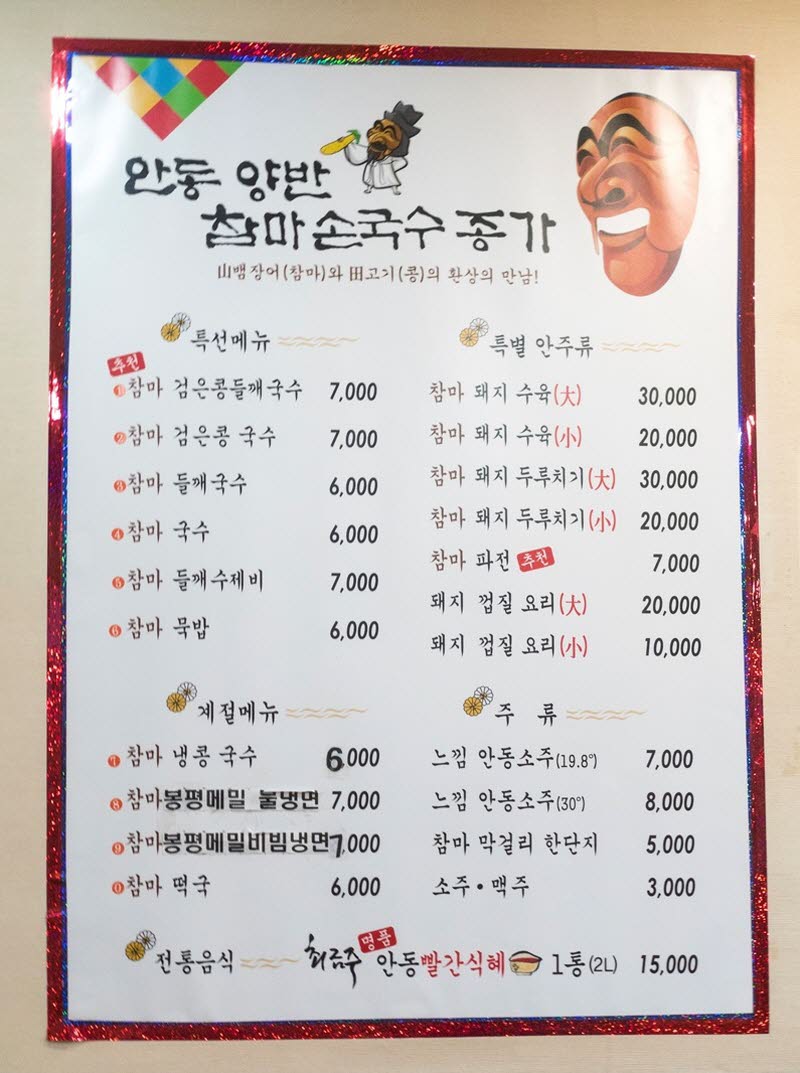 안동 양반
참마 손국수 종가
山뱀장어(참마)와 田고기(콩)의 환상의 만남!
특선메뉴
추천
1 참마 검은콩들깨국수 7,000
2 참마 검은콩 국수 7,000
3 참마 들깨국수 6,000
4 참마 국수 6,000
5 참마 들깨수제비 7,000
6 참마 묵밥 6,000
특별 안주류
참마 돼지 수육(大) 30,000
참마 돼지 수육(小) 20,000
참마 돼지 두루치기(大) 30,000
참마 돼지 두루치기(小) 20,000
참마 파전 추천 7,000
돼지 껍질 요리(大) 20,000
돼지 껍질 요리(小) 10,000
계절메뉴
7 참마 냉콩 국수 6,000
8 참마봉평메밀 물냉면 7,000
9 참마봉평메밀비빔냉면 7,000
0 참마 떡국 6,000
주 류
느낌 안동소주(19.8°) 7,000
느낌 안동소주(30°) 8,000
참마 막걸리 한단지 5,000
소주·맥주 3,000
전통음식 최금주 명품 안동빨간식혜 1통(2L) 15,000